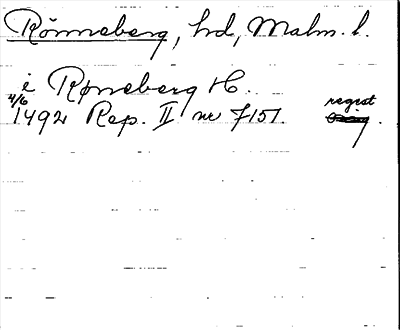 Rönneberg, hd, Malm. l.
i Røneberg H.
4/6
1492 Rep. II nr 7151. regist.